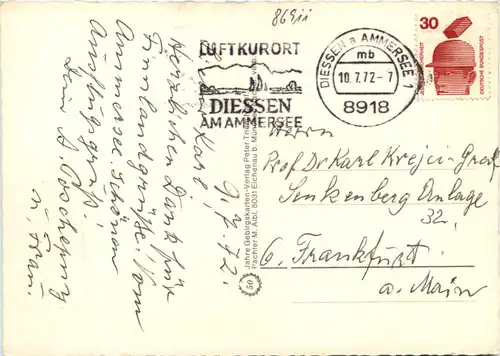 869ii
LUFTKURORT
DIESSEN
AM AMMERSEE
DIESSEN a AMMERSEE 1
mb
10.7.72-7
8918
30
DEUTSCHE BUNDESPOST
Herrn
Prof Dr Karl Krejci-Graf
Senkenberg Anlage
32.
6. Frankfurt
a. Main
9.7.72.
Karl,
Herzlichen Dank für
Finnlandgrüße! Vom
Ammersee schönen
Ausflugsgruß,
Dein
u. Frau.
50 Jahre Gebirgskarten-Verlag Peter
Pächter M. Aibl, 8031 Eichenau b.